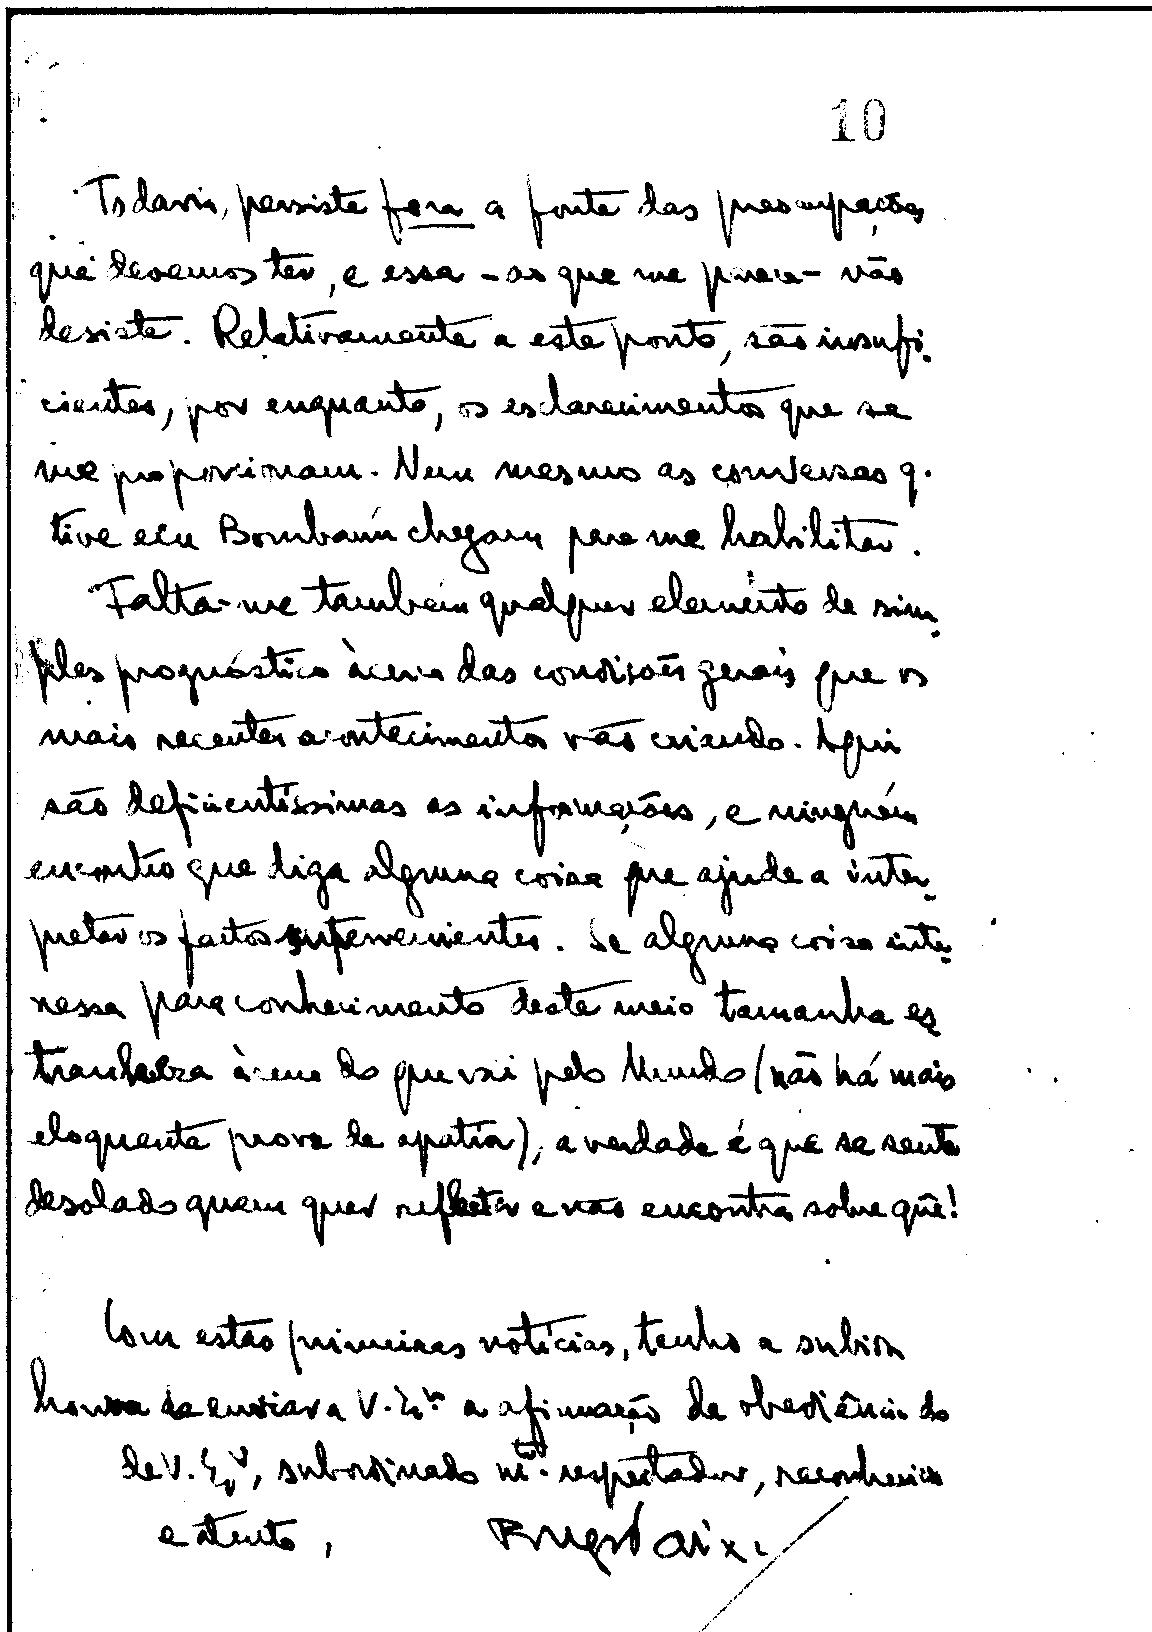 10
Todavia, persiste fora a fonte das preocupações
que devemos ter, e essa - ao que me parece - não
desiste. Relativamente a este ponto, são insufi-
cientes, por enquanto, os esclarecimentos que se
me proporcionam. Nem mesmo as conversas q.
tive em Bombaim chegam para me habilitar.
Falta-me também qualquer elemento de sim-
ples prognóstico àcerca das condições gerais que os
mais recentes acontecimentos vão criando. Aqui
são deficientíssimas as informações, e ninguém
encontro que diga alguma coisa que ajude a inter-
pretar os factos supervenientes. Se alguma coisa inte-
ressa para conhecimento deste meio tamanha es-
tranheza àcerca do que vai pelo Mundo (não há mais
eloquente prova de apatia), a verdade é que se sente
desolado quem quer reflectir e não encontra sobre quê!
Com estas primeiras notícias, tenho a subida
honra de enviar a V. Exª a afirmação de obediência do
de V. Exª, subordinado mtº respeitador, reconhecido
e atento,